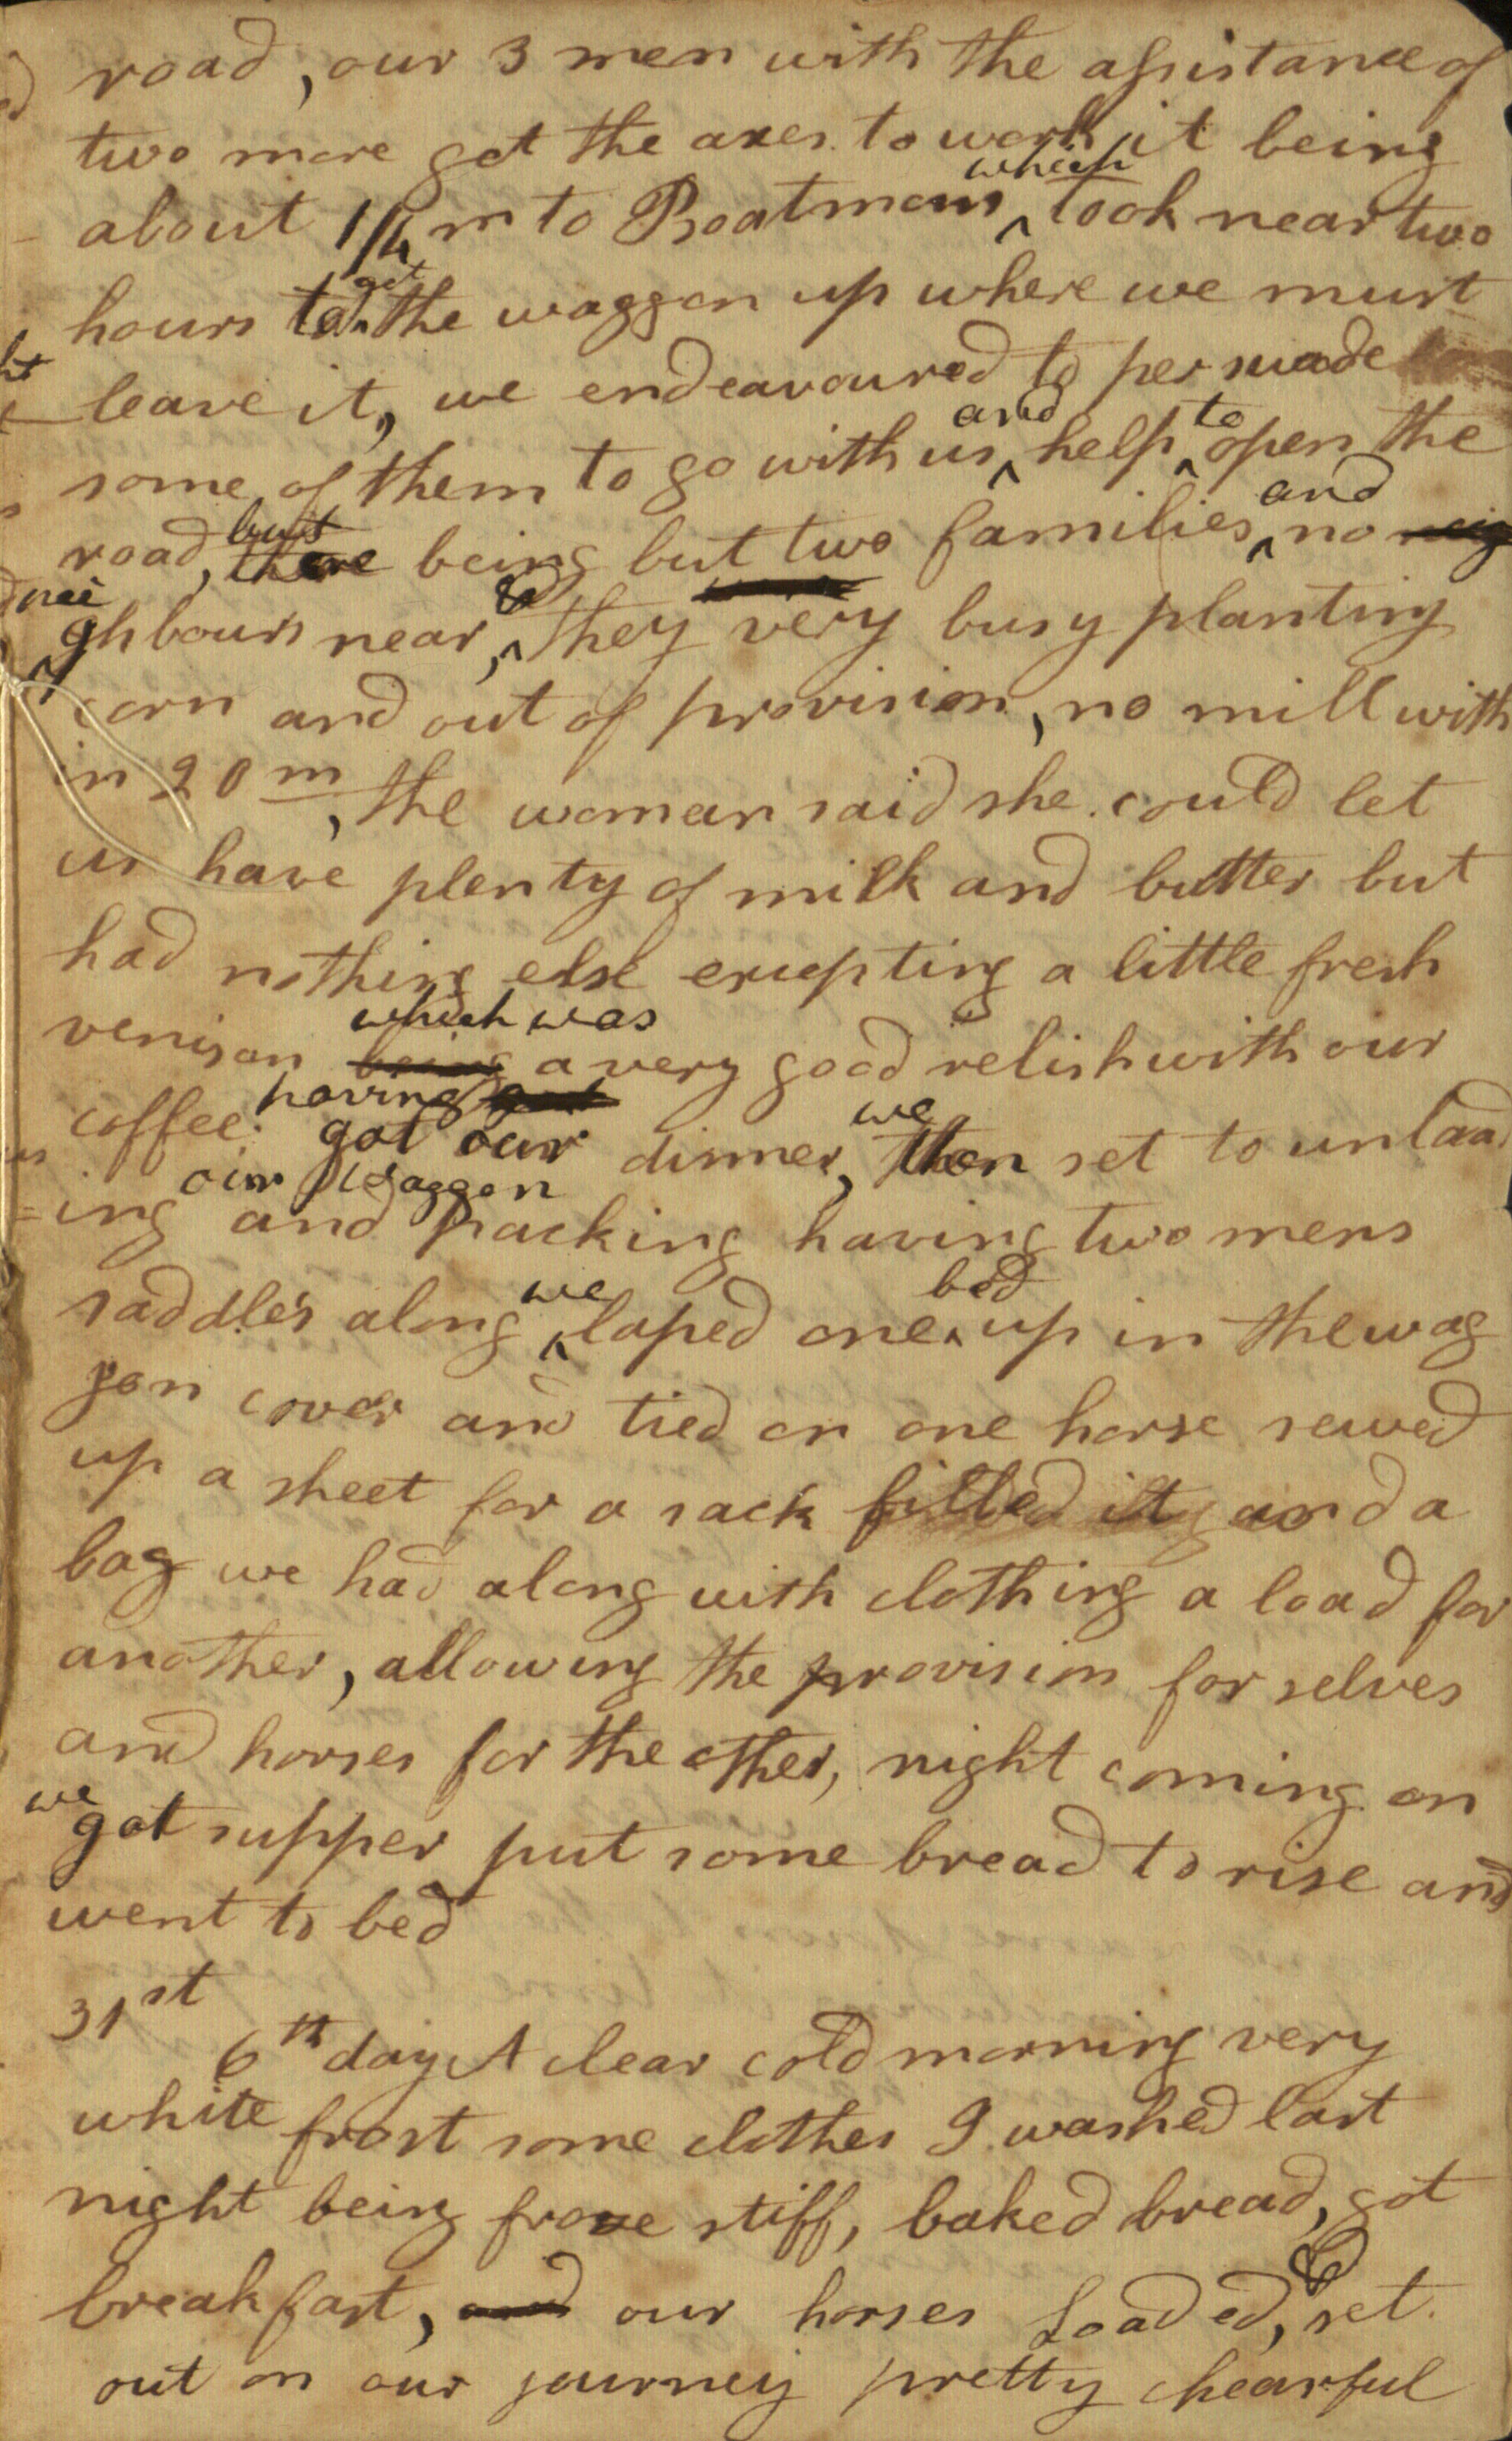 road, our 3 men with the assistance of
two more got the axes to work, it being
about 1/4 m to Boatmans which took near two
hours to get the waggon up where we must
leave it, we endeavoured to perswade
some of them to go with us and help to open the
road, but there being but two families and no neig
neighbours near, & they very busy planting
corn and out of provision, no mill with
in 20 m, the woman said she could let
us have plenty of milk and butter but
had nothing else excepting a little fresh
venison being which was a very good relish with our
coffee. having got our dinner, we then set to unload
=ing our Waggon and packing having two mens
saddles along we laped one bed up in the wag
gon cover and tied on one horse sewed
up a sheet for a sack filled it and a
bag we had along with clothing a load for
another, allowing the provision for selves
and horses for the other, night coming on
we got supper put some bread to rise and
went to bed
31st
6th day A clear cold morning very
white frost some clothes I washed last
night being froze stiff, baked bread, got
breakfast, and our horses Loaded, & set
out on our journey pretty chearful